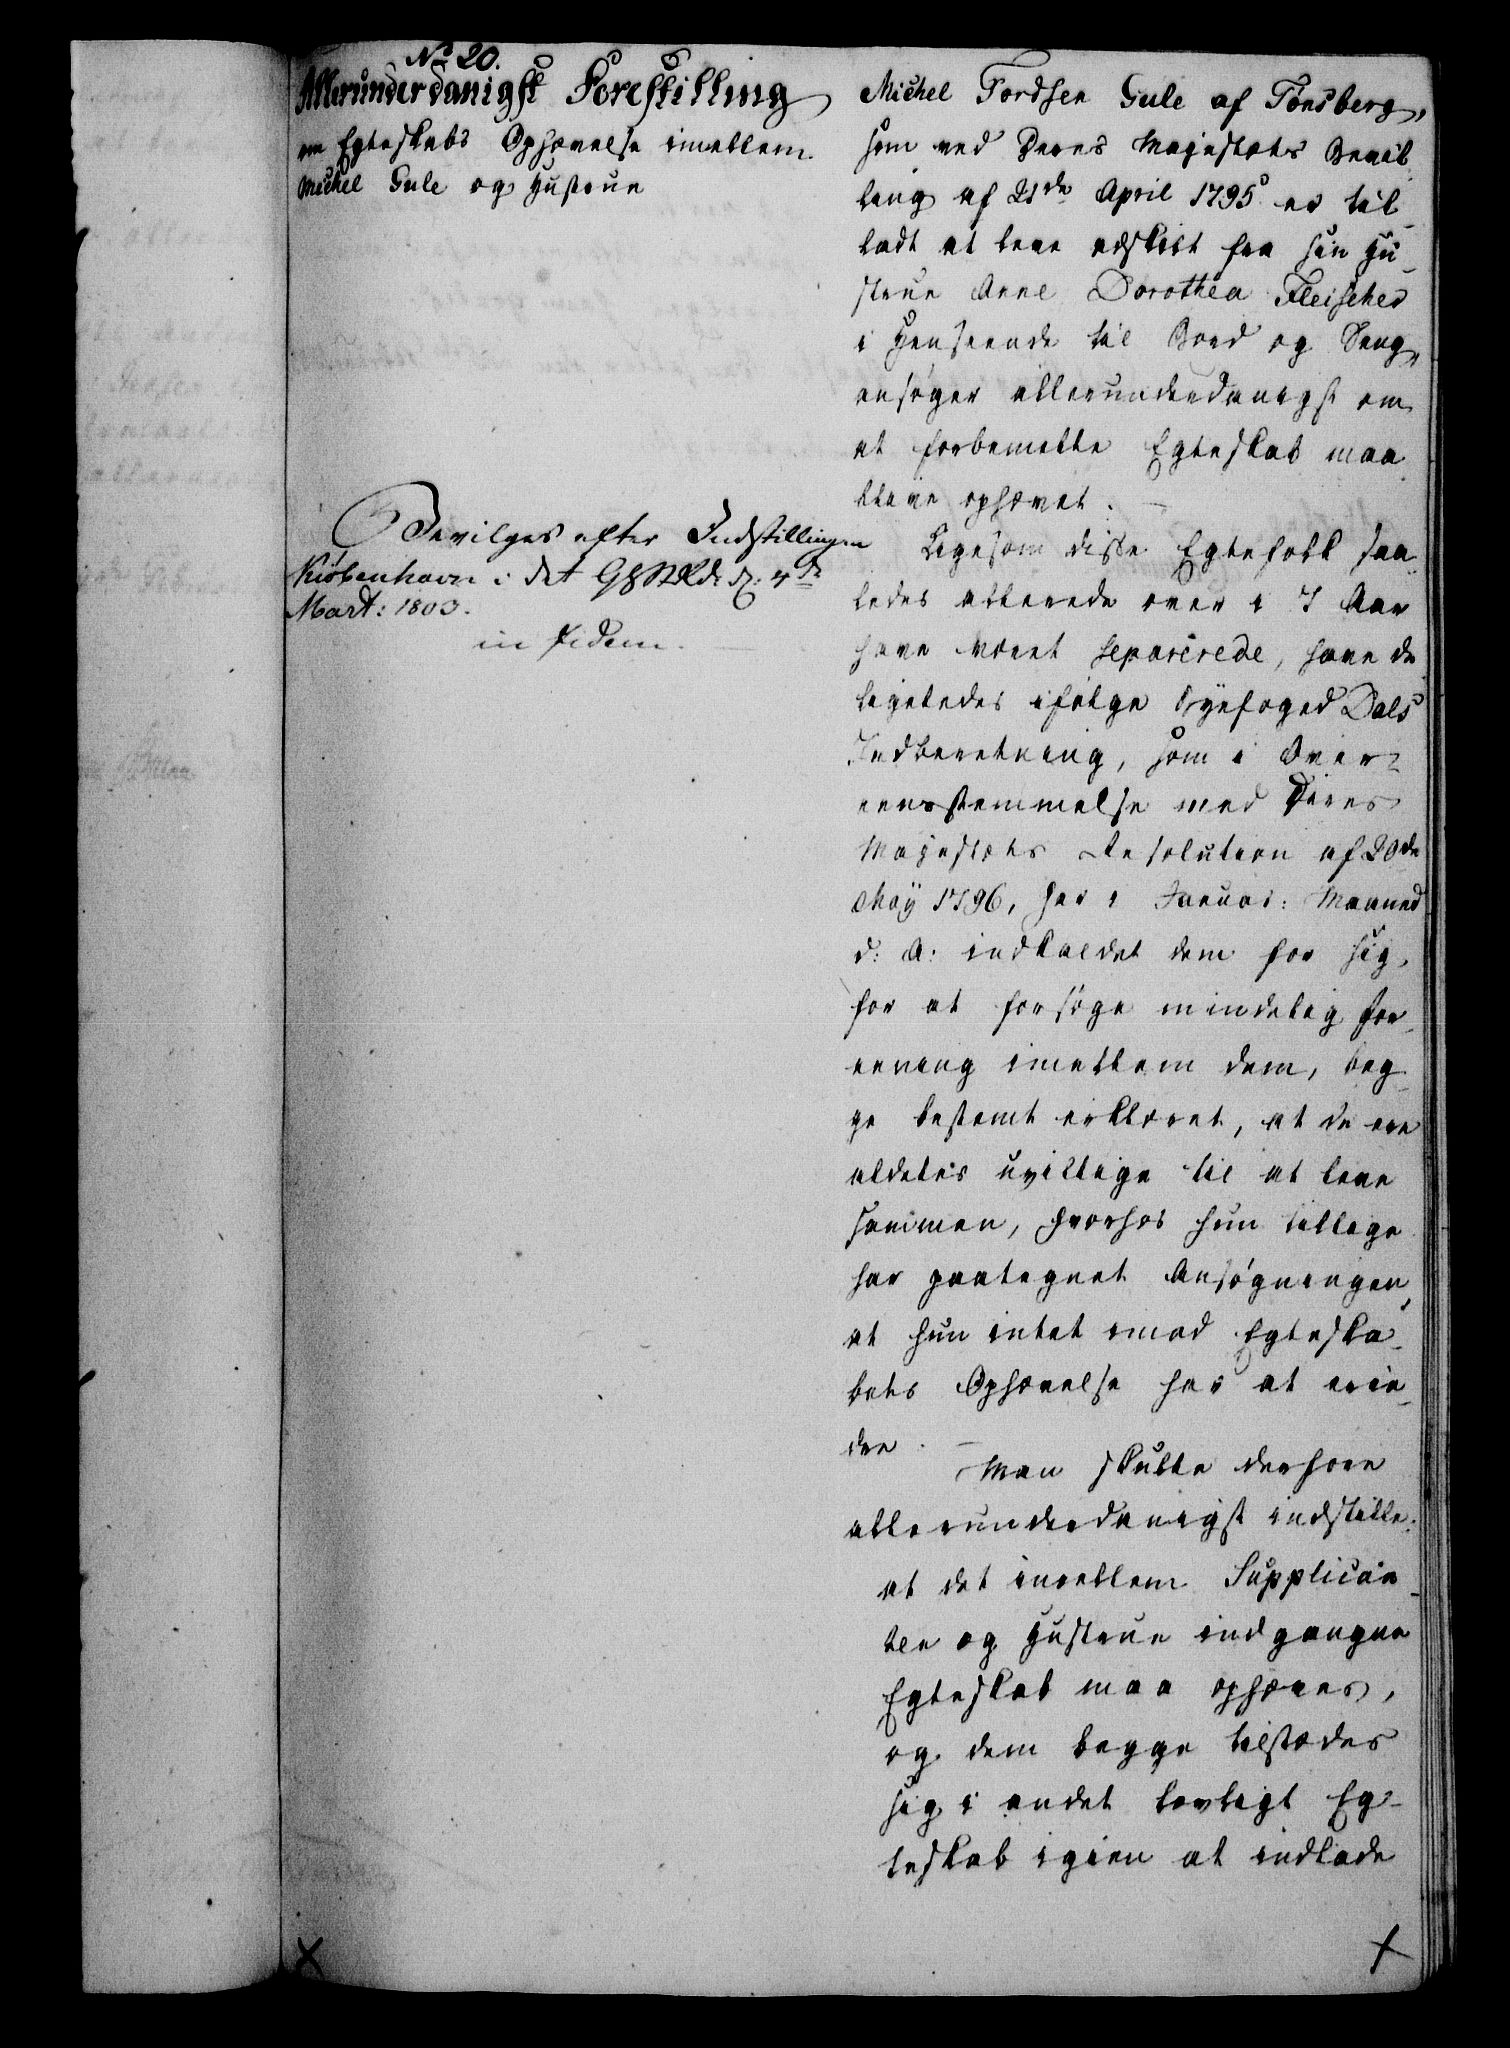 No 20.
Allerunderdanigst Forestilling
om Egteskabs Ophævelse imellem
Michel Gule og Hustrue
Bevilges efter Indstillingen
Kiøbenhavn i det
Mart: 1803.
in fidem.
Michel Tordsen Gule af Tønsberg,
som ved Deres Majestæts Bevil-
ling af 21de April 1795 er til-
ladt at leve adskilt fra sin Hu-
strue Anne Dorothea Fleischer
i Henseende til Bord og Seng,
ansøger allerunderdanigst om
at forbemelte Egteskab maa
blive ophævet.
Ligesom disse Egtefolk saa-
ledes allerede over i 7 Aar
have været separerede, have de
ligeledes ifølge Byefoged Dals
Indberetning, som i Over-
eensstemmelse med Deres
Majestæts Resolution af 20de
May 1796, har i Januar: Maaned
d: A: indkaldet dem for sig,
for at forsøge mindelig For-
eening imellem dem, beg-
ge bestemt erklæret, at de ere
aldeles uvillige til at leve
sammen, hvorhos hun tillige
har paategnet Ansøgningen,
at hun intet imod Egteska-
bets Ophævelse har at erin-
dre.
Man skulle derfore
allerunderdanigst indstille:
at det imellem Supplican-
ten og Hustrue indgangne
Egteskab maa ophæves,
og dem begge tilstædes
sig i andet lovligt Eg-
teskab igien at indlade